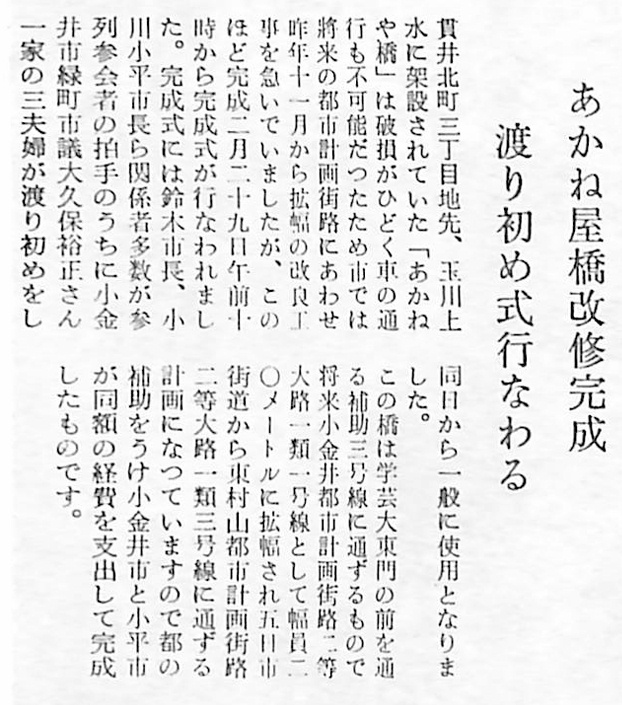 あかね屋橋改修完成
渡り初め式行なわる
貫井北町三丁目地先、玉川上
水に架設されていた「あかね
や橋」は破損がひどく車の通
行も不可能だつたため市では
将来の都市計画街路にあわせ
昨年十一月から拡幅の改良工
事を急いでいましたが、この
ほど完成二月二十九日午前十
時から完成式が行なわれまし
た。完成式には鈴木市長、小
川小平市長ら関係者多数が参
列参会者の拍手のうちに小金
井市緑町市議大久保裕正さん
一家の三夫婦が渡り初めをし
同日から一般に使用となりま
した。
この橋は学芸大東門の前を通
る補助三号線に通ずるもので
将来小金井都市計画街路二等
大路一類一号線として幅員二
〇メートルに拡幅され五日市
街道から東村山都市計画街路
二等大路一類三号線に通ずる
計画になつていますので都の
補助をうけ小金井市と小平市
が同額の経費を支出して完成
したものです。